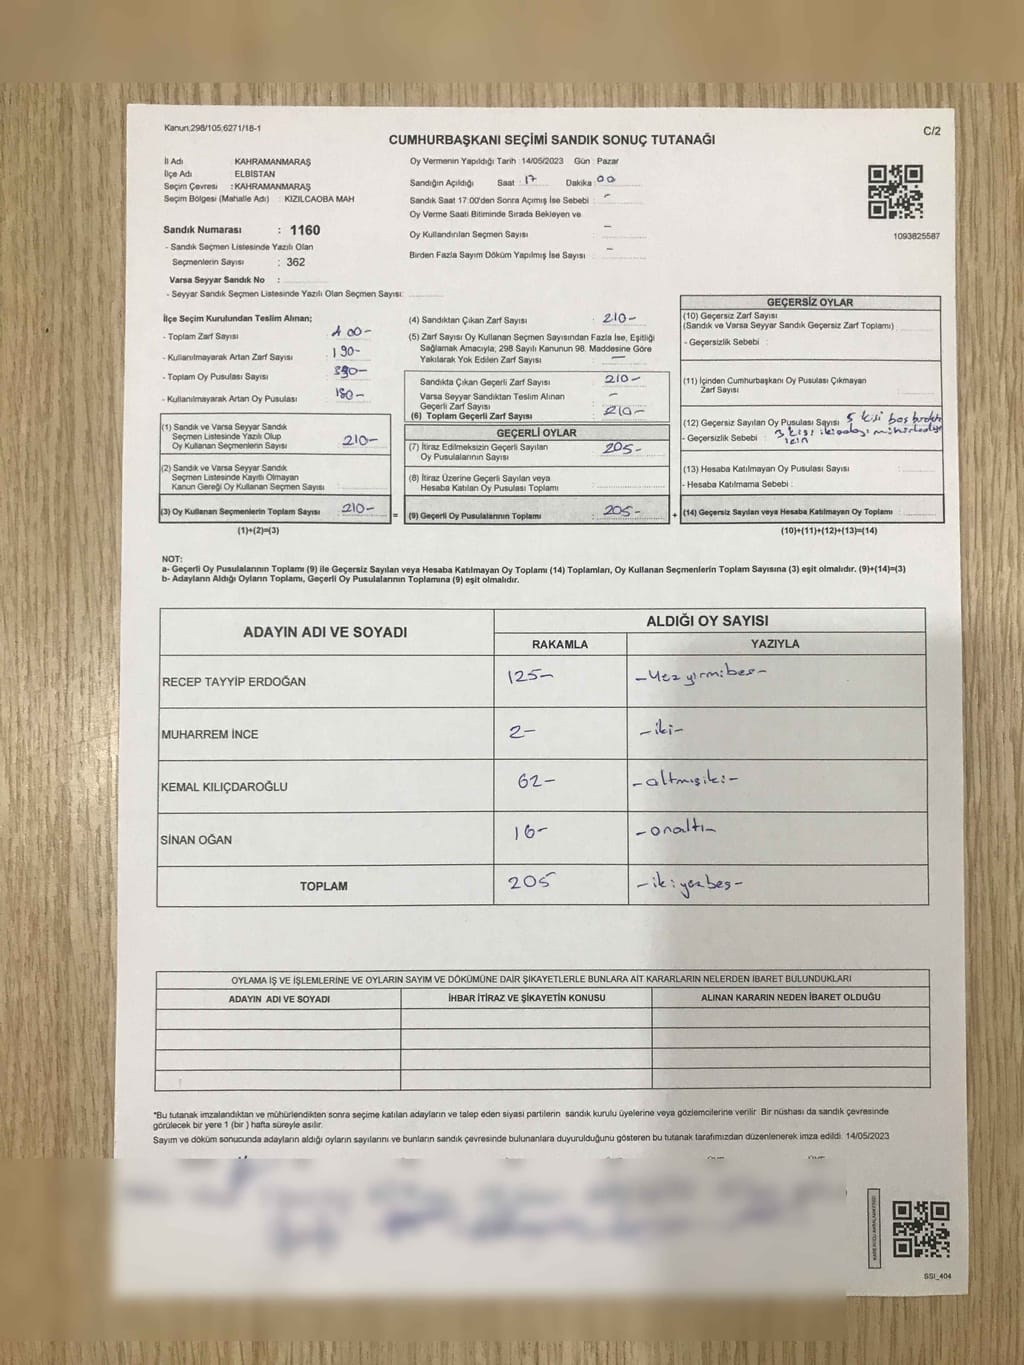 Kanun:298/105;6271/18-1
C/2
CUMHURBAŞKANI SEÇİMİ SANDIK SONUÇ TUTANAĞI
İl Adı KAHRAMANMARAŞ
İlçe Adı ELBİSTAN
Seçim Çevresi : KAHRAMANMARAŞ
Seçim Bölgesi (Mahalle Adı) : KIZILCAOBA MAH
Sandık Numarası : 1160
- Sandık Seçmen Listesinde Yazılı Olan
Seçmenlerin Sayısı : 362
Varsa Seyyar Sandık No :
- Seyyar Sandık Seçmen Listesinde Yazılı Olan Seçmen Sayısı:
Oy Vermenin Yapıldığı Tarih : 14/05/2023 Gün : Pazar
Sandığın Açıldığı Saat : 17 Dakika : 00
Sandık Saat 17:00'den Sonra Açımış İse Sebebi : -
Oy Verme Saati Bitiminde Sırada Bekleyen ve
Oy Kullandırılan Seçmen Sayısı : -
Birden Fazla Sayım Döküm Yapılmış İse Sayısı : -
1093825587
İlçe Seçim Kurulundan Teslim Alınan;
- Toplam Zarf Sayısı : 400-
- Kullanılmayarak Artan Zarf Sayısı : 190-
- Toplam Oy Pusulası Sayısı :
- Kullanılmayarak Artan Oy Pusulası :
(1) Sandık ve Varsa Seyyar Sandık
Seçmen Listesinde Yazılı Olup
Oy Kullanan Seçmenlerin Sayısı : 210-
(2) Sandık ve Varsa Seyyar Sandık
Seçmen Listesinde Kayıtlı Olmayan
Kanun Gereği Oy Kullanan Seçmen Sayısı :
(3) Oy Kullanan Seçmenlerin Toplam Sayısı : 210-
(1)+(2)=(3)
=
(4) Sandıktan Çıkan Zarf Sayısı : 210-
(5) Zarf Sayısı Oy Kullanan Seçmen Sayısından Fazla İse, Eşitliği
Sağlamak Amacıyla, 298 Sayılı Kanunun 98. Maddesine Göre
Yakılarak Yok Edilen Zarf Sayısı : -
Sandıkta Çıkan Geçerli Zarf Sayısı : 210-
Varsa Seyyar Sandıktan Teslim Alınan
Geçerli Zarf Sayısı : -
(6) Toplam Geçerli Zarf Sayısı : 210-
GEÇERLİ OYLAR
(7) İtiraz Edilmeksizin Geçerli Sayılan
Oy Pusulalarının Sayısı : 205-
(8) İtiraz Üzerine Geçerli Sayılan veya
Hesaba Katılan Oy Pusulası Toplamı :
(9) Geçerli Oy Pusulalarının Toplamı : 205-
+
GEÇERSİZ OYLAR
(10) Geçersiz Zarf Sayısı
(Sandık ve Varsa Seyyar Sandık Geçersiz Zarf Toplamı) :
- Geçersizlik Sebebi :
(11) İçinden Cumhurbaşkanı Oy Pusulası Çıkmayan
Zarf Sayısı :
(12) Geçersiz Sayılan Oy Pusulası Sayısı : 5 kişi boş
- Geçersizlik Sebebi : 3 kişi
için
(13) Hesaba Katılmayan Oy Pusulası Sayısı :
- Hesaba Katılmama Sebebi :
(14) Geçersiz Sayılan veya Hesaba Katılmayan Oy Toplamı :
(10)+(11)+(12)+(13)=(14)
NOT:
a- Geçerli Oy Pusulalarının Toplamı (9) ile Geçersiz Sayılan veya Hesaba Katılmayan Oy Toplamı (14) Toplamları, Oy Kullanan Seçmenlerin Toplam Sayısına (3) eşit olmalıdır. (9)+(14)=(3)
b- Adayların Aldığı Oyların Toplamı, Geçerli Oy Pusulalarının Toplamına (9) eşit olmalıdır.
ADAYIN ADI VE SOYADI ALDIĞI OY SAYISI
RAKAMLA YAZIYLA
RECEP TAYYİP ERDOĞAN 125- -yüzyirmibeş-
MUHARREM İNCE 2- -iki-
KEMAL KILIÇDAROĞLU 62- -altmışiki-
SİNAN OĞAN 16- -onaltı-
TOPLAM 205 -ikiyüzbeş-
OYLAMA İŞ VE İŞLEMLERİNE VE OYLARIN SAYIM VE DÖKÜMÜNE DAİR ŞİKAYETLERLE BUNLARA AİT KARARLARIN NELERDEN İBARET BULUNDUKLARI
ADAYIN ADI VE SOYADI İHBAR İTİRAZ VE ŞİKAYETİN KONUSU ALINAN KARARIN NEDEN İBARET OLDUĞU
*Bu tutanak imzalandıktan ve mühürlendikten sonra seçime katılan adayların ve talep eden siyasi partilerin sandık kurulu üyelerine veya gözlemcilerine verilir. Bir nüshası da sandık çevresinde
görülecek bir yere 1 (bir ) hafta süreyle asılır.
Sayım ve döküm sonucunda adayların aldığı oyların sayılarını ve bunların sandık çevresinde bulunanlara duyurulduğunu gösteren bu tutanak tarafımızdan düzenlenerek imza edildi. 14/05/2023
SSI_404